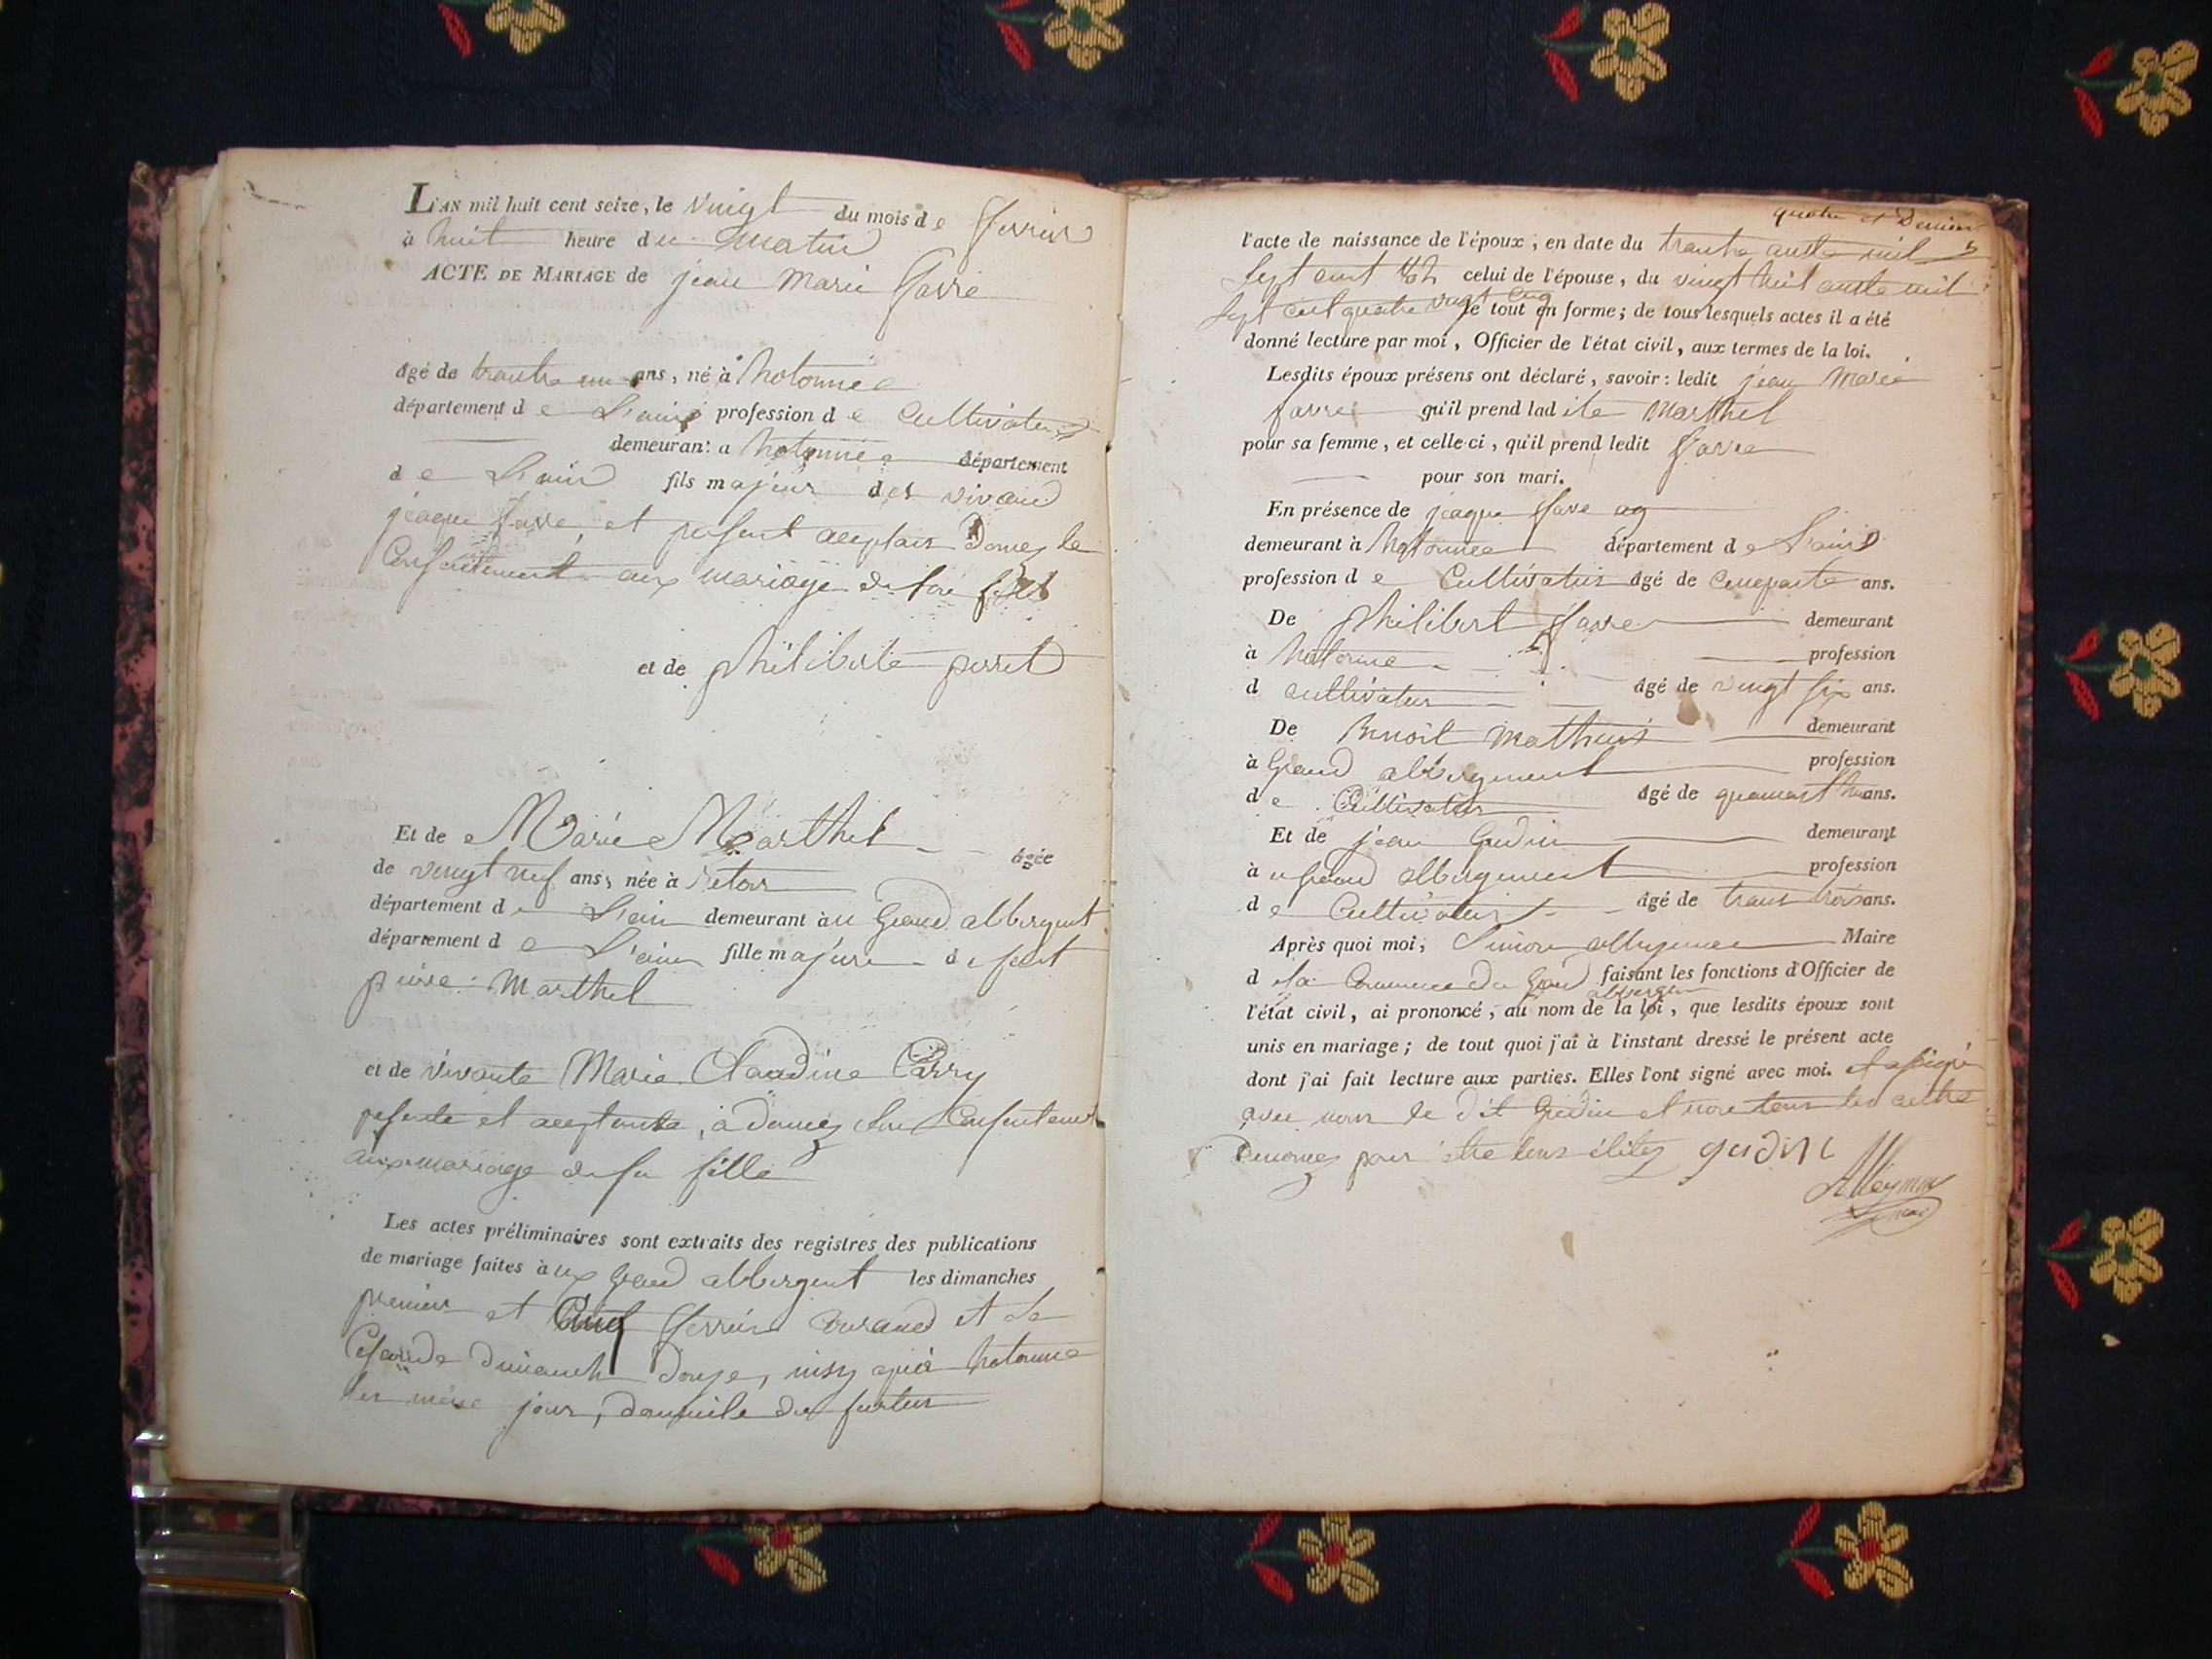 L'AN mil huit cent seize, le vingt du mois de fevrier
à huit heure du matin
ACTE DE MARIAGE de jean Marie favre
âgé de trante un ans, né à hotonne
département de L'ain profession de Cultivateur
demeurant a hotonne département
de L'ain fils majeur des vivant
jeaque favre, et present aceptan Donne le
Consentement aux mariage de son fils
et de philiberte perret
Et de Marie Marthel âgée
de vingt neuf ans, née à
département de L'ain demeurant àu Grand abbergent
département de L'ain fille majeure de feut
pierre Marthel
et de vivante Marie Claudine Carry
presente et aceptente, a donnez son Consentement
aux mariage de sa fille
Les actes préliminaires sont extraits des registres des publications
de mariage faites àux Grand abbergent les dimanches
premier et fevrier Courand et le
Cegonde dimanch douze, insy qu'à hotonne
les même jour, domicile du futur
quatre et Dernier
l'acte de naissance de l'époux, en date du trante auste mil
sept cent celui de l'épouse, du vingt huit auste mil
sept cent quatre vingt cinq le tout en forme; de tous lesquels actes il a été
donné lecture par moi, Officier de l'état civil, aux termes de la loi.
Lesdits époux présens ont déclaré, savoir: ledit jean Marie
favre qu'il prend ladite Marthel
pour sa femme, et celle-ci, qu'il prend ledit favre
pour son mari.
En présence de jeaque favre
demeurant à hotonne département de L'ain
profession de Cultivateur âgé de ans.
De philibert favre demeurant
à hotonne profession
d cultivateur âgé de vingt six ans.
De Benoit Mathieu demeurant
à Grand abbergement profession
de Cultivateur âgé de ans.
Et de jean Gudin demeurant
àu Grand abbergement profession
de Cultivateur âgé de trant trois ans.
Après quoi moi, Simon Maire
de la Commune du Grand abbergem faisant les fonctions d'Officier de
l'état civil, ai prononcé, au nom de la loi, que lesdits époux sont
unis en mariage; de tout quoi j'ai à l'instant dressé le présent acte
dont j'ai fait lecture aux parties. Elles l'ont signé avec moi. et a signé
avec nous le dit Gudin et non tous les autre
Denomez pour être gudin